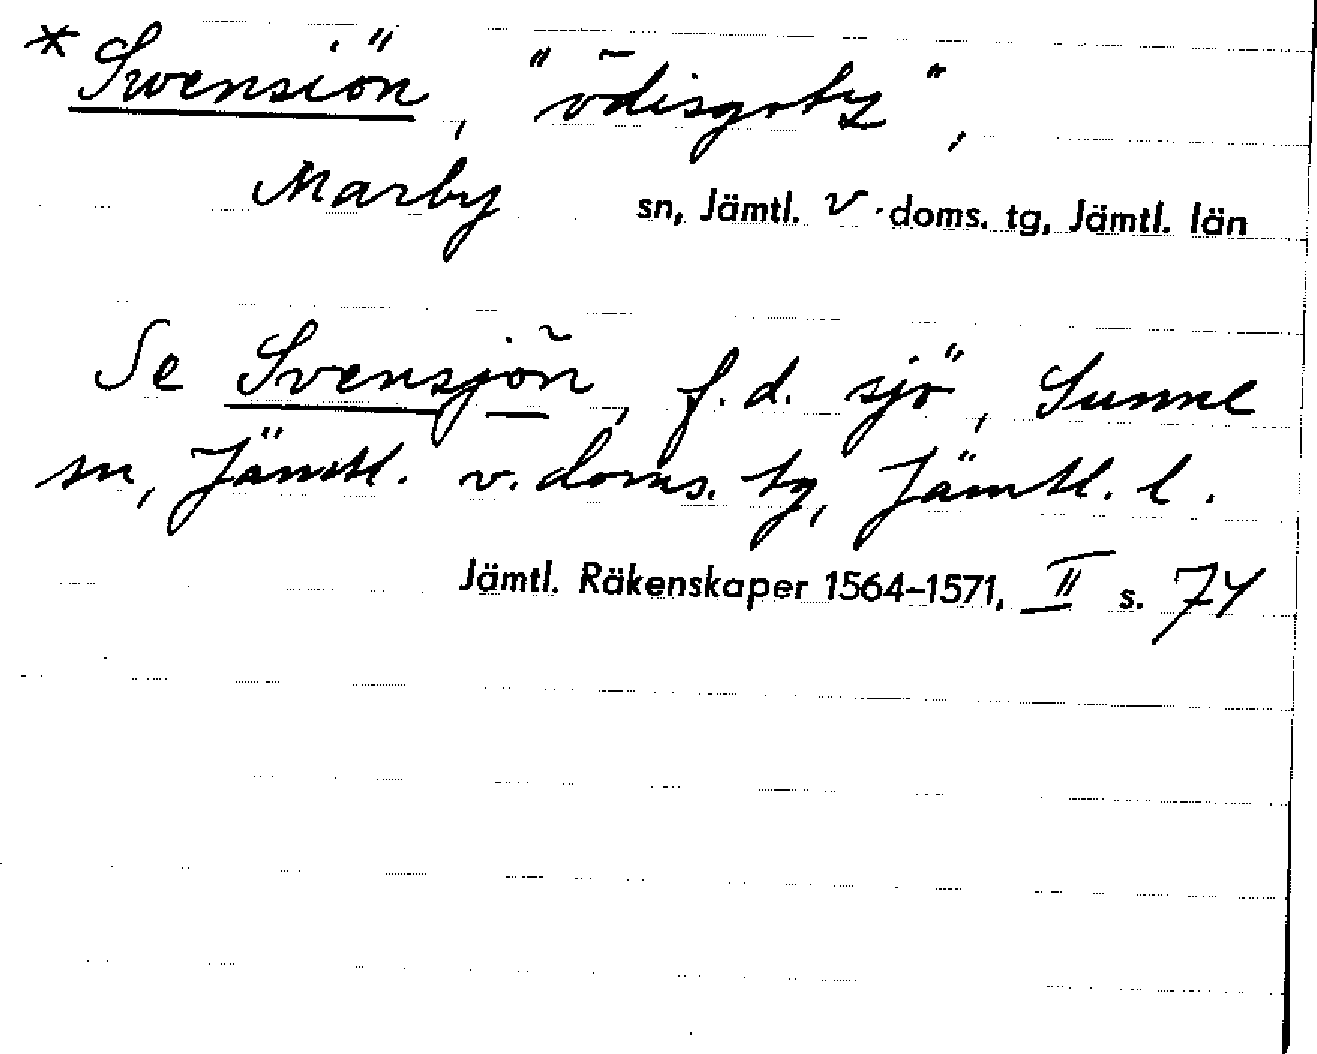 * Swensiön, "ödisgotz",
Marby sn, Jämtl. v. doms. tg, Jämtl. län
Se Svensjön, f.d. sjö, Sunne
sn, Jämtl. v. doms. tg, Jämtl. l.
Jämtl. Räkenskaper 1564–1571, II s. 74